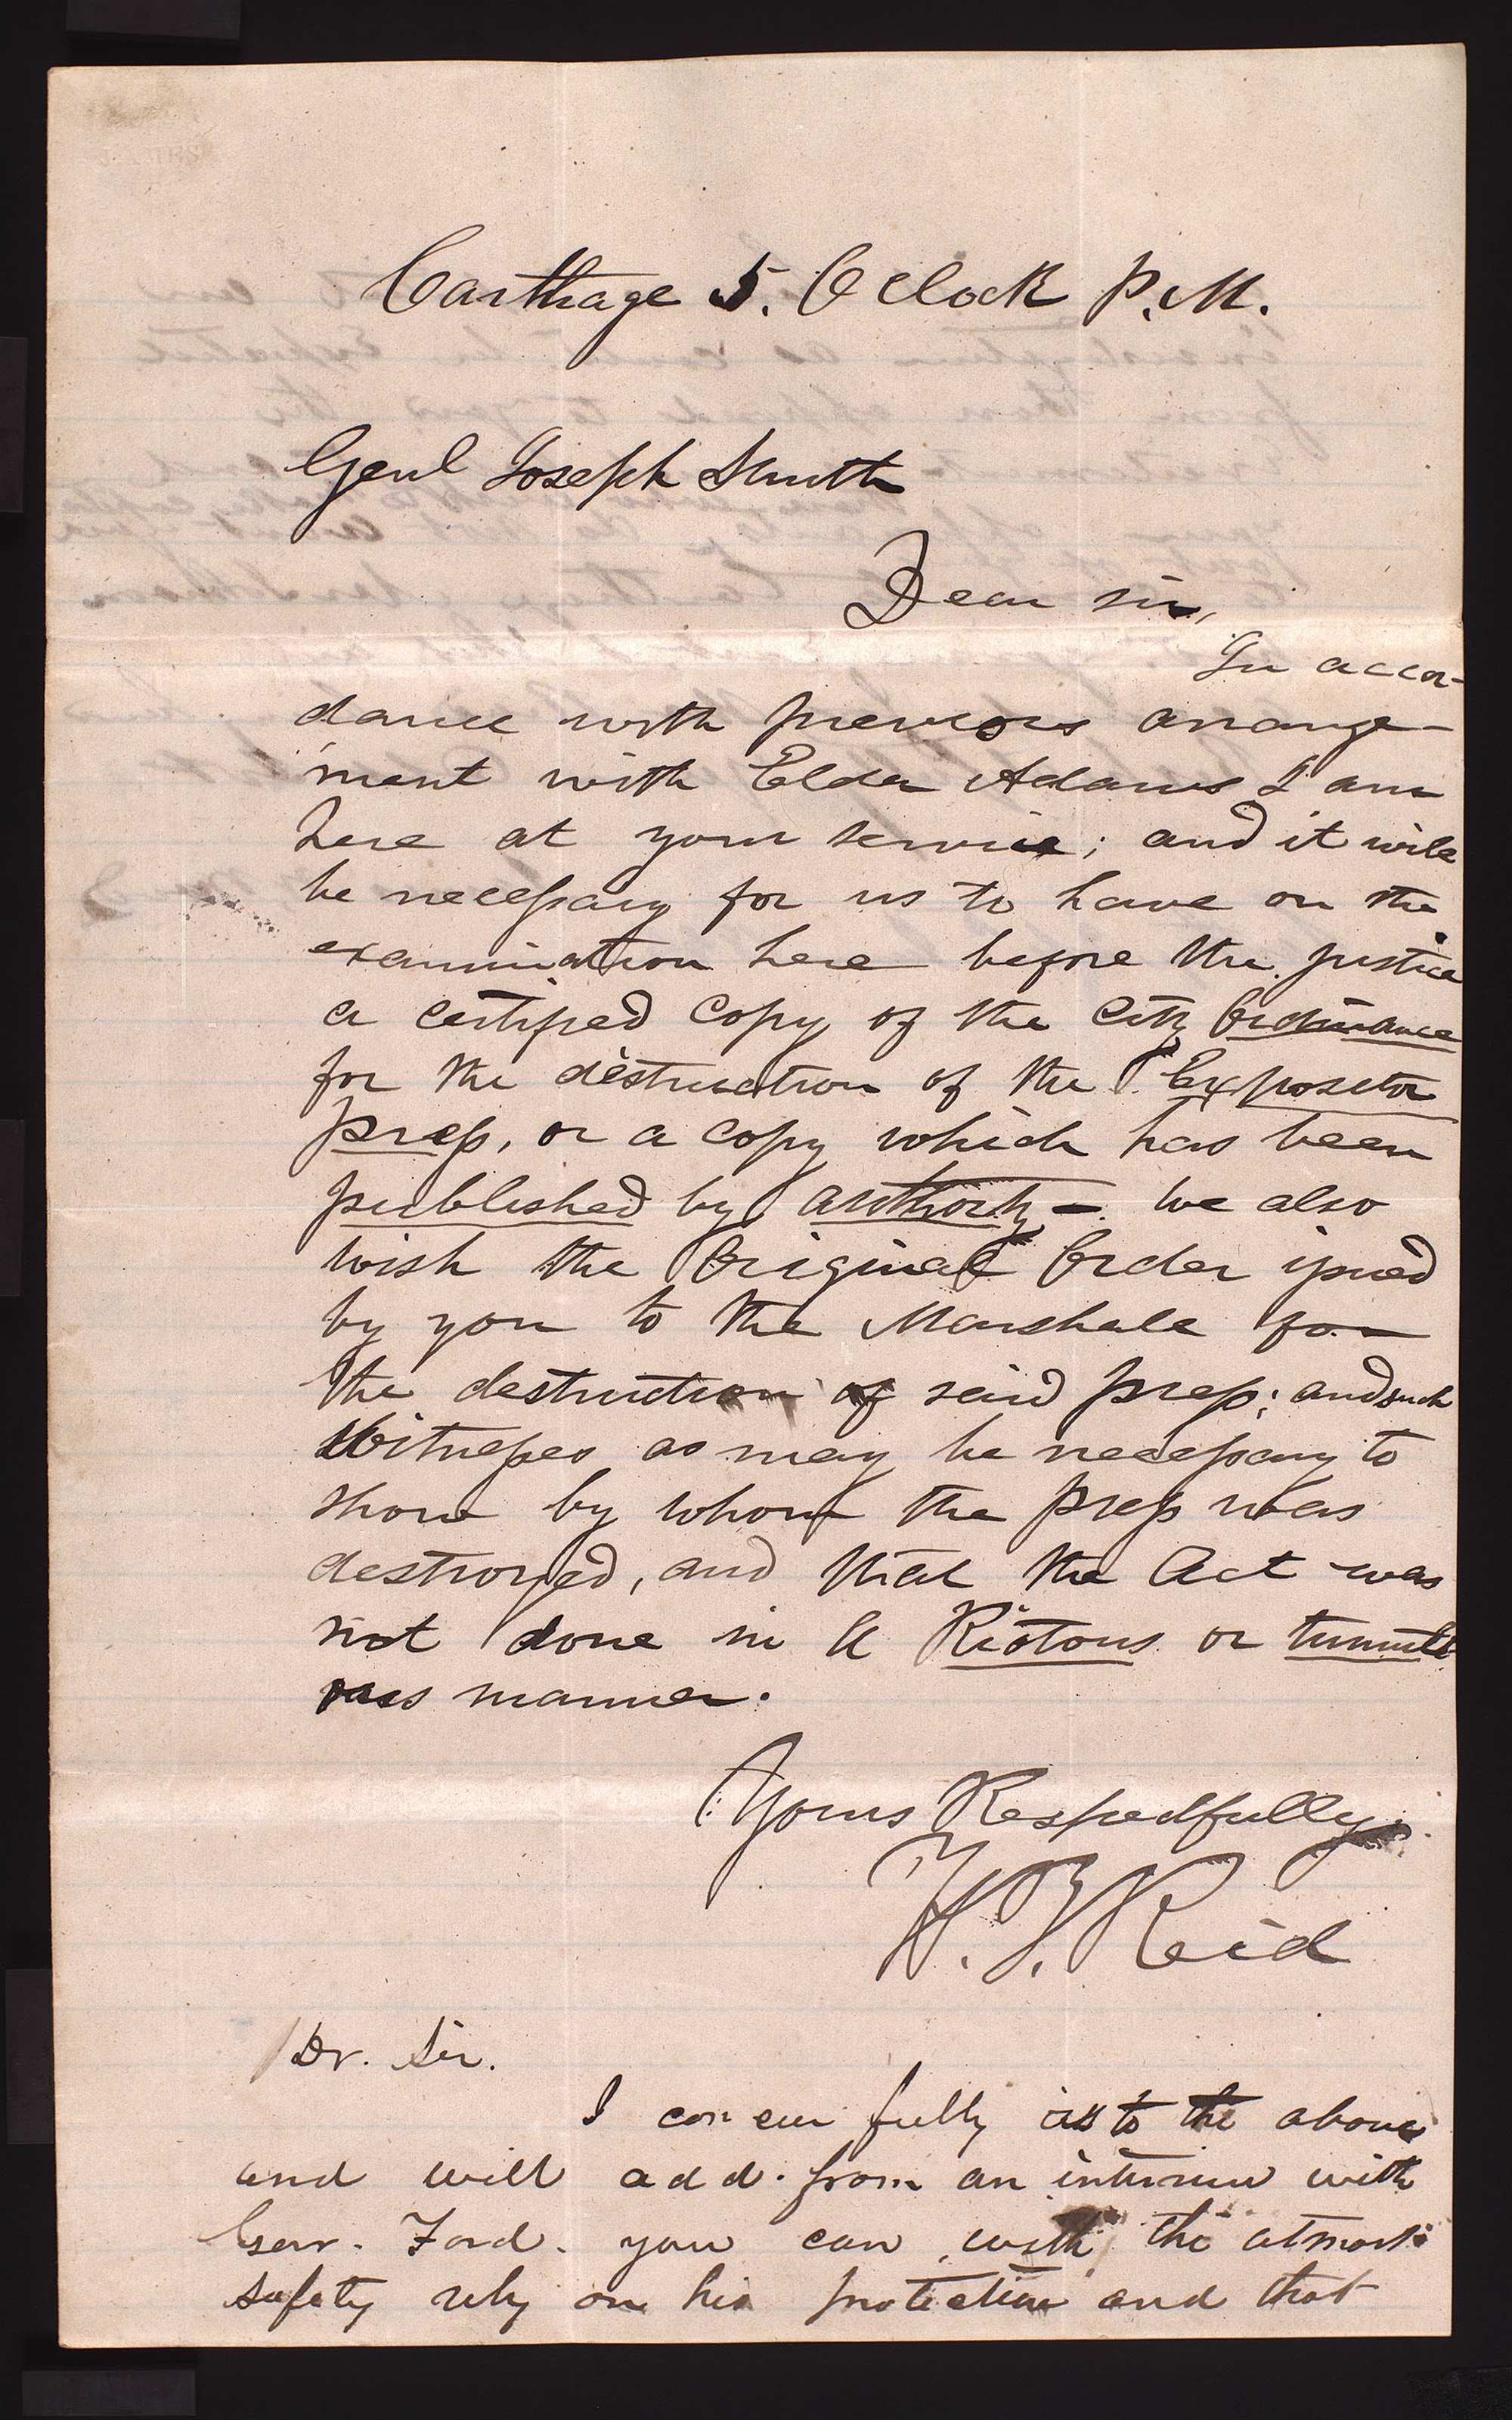 Carthage 5. O Clock P.M.
Genl Joseph Smith
Dear sir,
In accor-
dance with previous arrange-
ment with Elder Adams I am
here at your service; and it will
be necessary for us to have on the
examination here before the justice
a certified Copy of the City Ordinance
for the destruction of the Expositor
press, or a copy which has been
published by authority -. We also
wish the Original Order issued
by you to the Marshall for
the destruction of said press; and such
Witnesses as may be necessary to
show by whom the press was
destroyed, and that the Act was
not done in a Riotous or tumult
ous manner.
Yours Respectfully
H. T. Reid
Dr. Sir.
I concur fully as to the above
and will add. from an interview with
Gov. Ford. you can with the utmost
safety rely on his protection and that